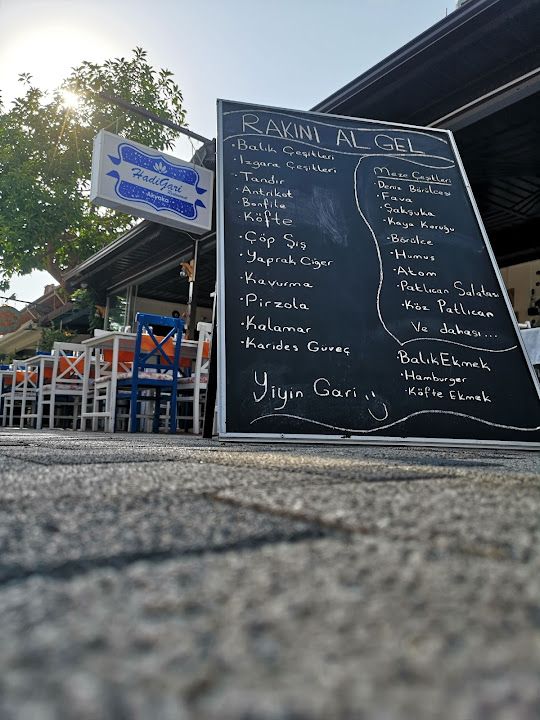 HadiGari
Restaurant
Akyaka
RAKINI AL GEL
• Balık Çeşitleri
• Izgara Çeşitleri
• Tandır
• Antrikot
• Bonfile
• Köfte
• Çöp Şiş
• Yaprak Ciğer
• Kavurma
• Pirzola
• Kalamar
• Karides Güveç
Yiyin Gari
Meze Çeşitleri
• Deniz Börülcesi
• Fava
• Şakşuka
• Kaya Koruğu
• Börülce
• Humus
• Atom
• Patlıcan Salatası
• Köz Patlıcan
Ve dahası...
BalıkEkmek
• Hamburger
• Köfte Ekmek